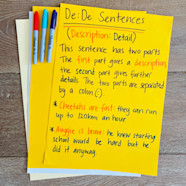 De:De Sentences
(Description: Detail)
This sentence has two parts.
The first part gives a description,
the second part gives further
details. The two parts are separated
by a colon (:)
* Cheetahs are fast: they can run
up to 120km an hour.
* Angus is brave: he knew starting
school would be hard but he
did it anyway.